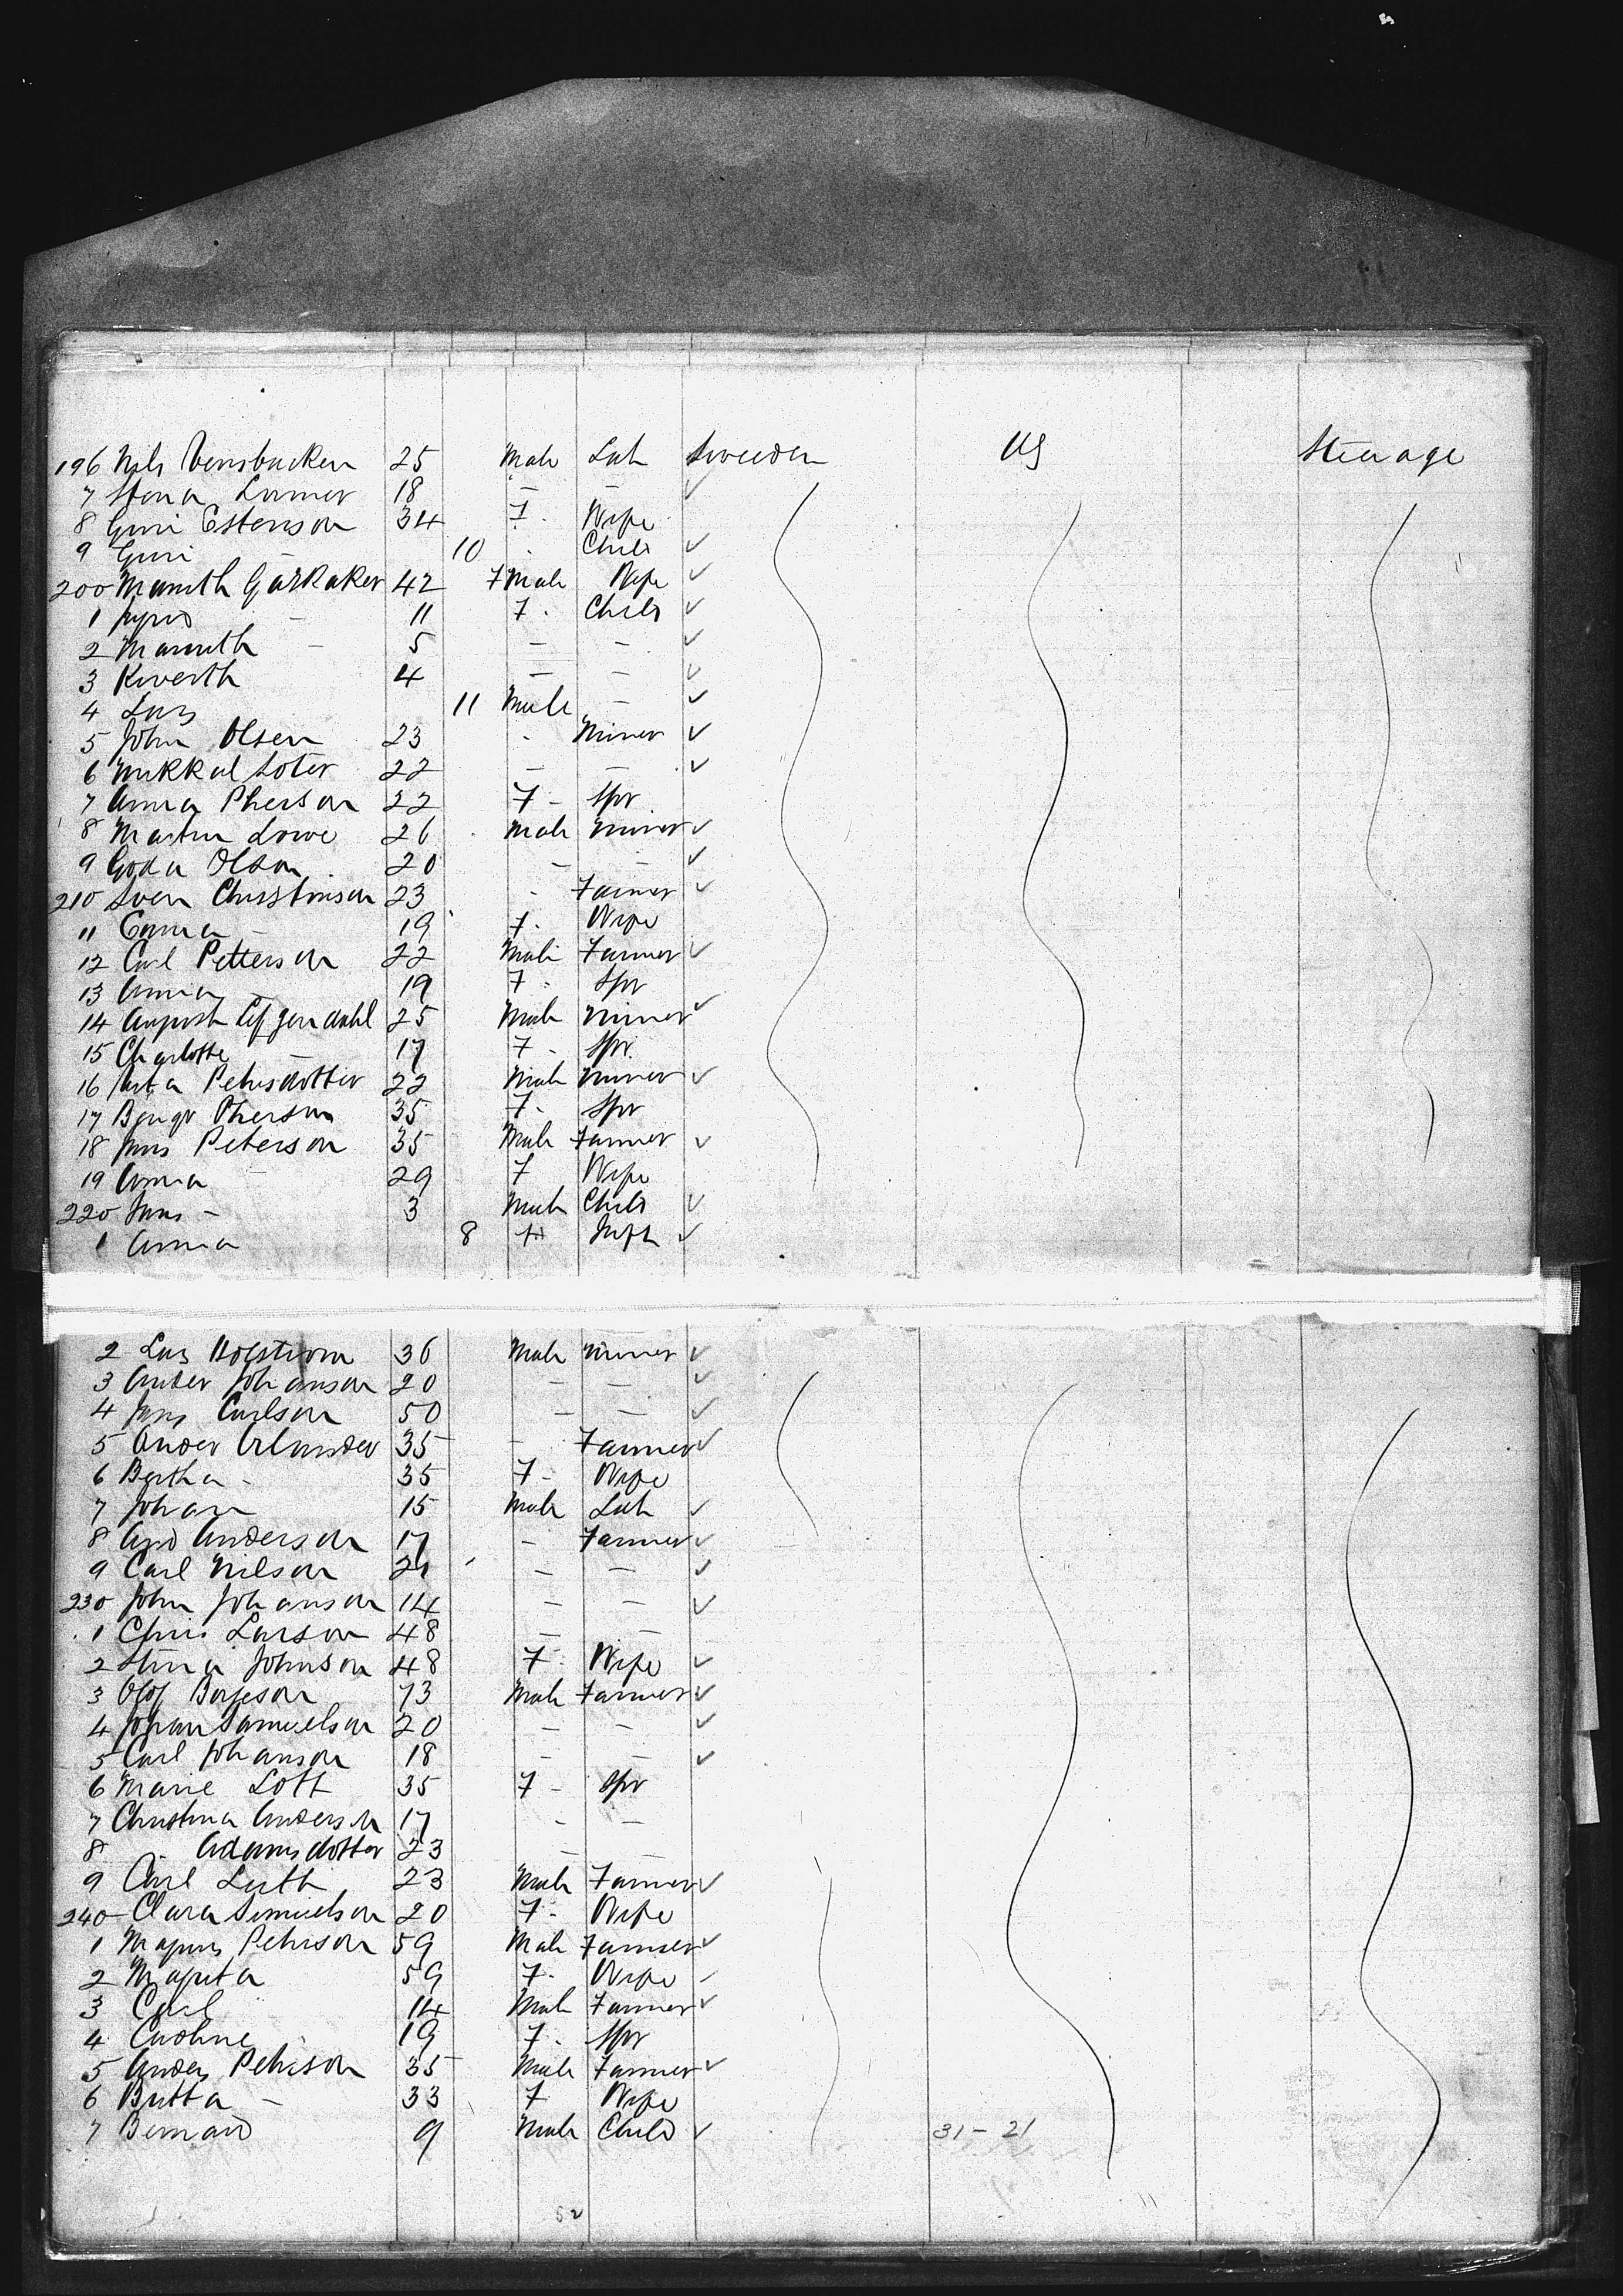 196 Nils Vensbacken 25 Male Lab Sweeden US Steerage
7 Stena Lamer 18 - -
8 Guri Estenson 34 F. Wife
9 Guri 10 . Child
200 Marith Garkaker 42 F Male Wife
1 - 11 F. Child
2 Marith - 5 - -
3 Kiverth 4 - -
4 Lars 11 Male -
5 John Olsen 23 . Miner
6 Mikkal Soter 22 - -
7 Anna Pherson 22 F - Spr
8 Martin Lowe 26 Male Miner
9 Goda Olson 20 - -
210 Sven Christinson 23 - Farmer
11 Emma - 19 F. Wife
12 Carl Petterson 22 Male Farmer
13 Anna - 19 F - Spr
14 August 25 Male Miner
15 Charlotte - 17 F - Spr.
16 Petersdotter 22 Male Miner
17 Pherson 35 F - Spr
18 Jons Peterson 35 Male Farmer
19 Anna - 29 F Wife
220 Jons - 3 Male Child
1 Anna 8 Inft
2 Lars Holstrom 36 Male Miner
3 Ander Johanson 20 - -
4 Jons Carlson 50 - -
5 Ander 35 - Farmer
6 Bertha - 35 F - Wife
7 Johan 15 Male Lab
8 And Anderson 17 - Farmer
9 Carl Nilson 24 - -
230 John Johanson 14 - -
1 Chris. Larson 48 - -
2 Stina Johnson 48 F Wife
3 Olof Borjeson 73 Male Farmer
4 Johan Samuelson 20 - -
5 Carl Johanson 18 - -
6 Marie Lott 35 F - Spr
7 Christina Anderson 17 - -
8 - Adamsdotter 23 - -
9 Carl Luth 23 Male Farmer
240 Clara Samuelson 20 F - Wife
1 Magnus Peterson 59 Male Farmer
2 Magreta 59 F - Wife
3 Carl 14 Male Farmer
4 Caroline 19 F . Spr
5 Anders Peterson 35 Male Farmer
6 Britta - 33 F Wife
7 Bernard 9 Male Child 31 - 21
52